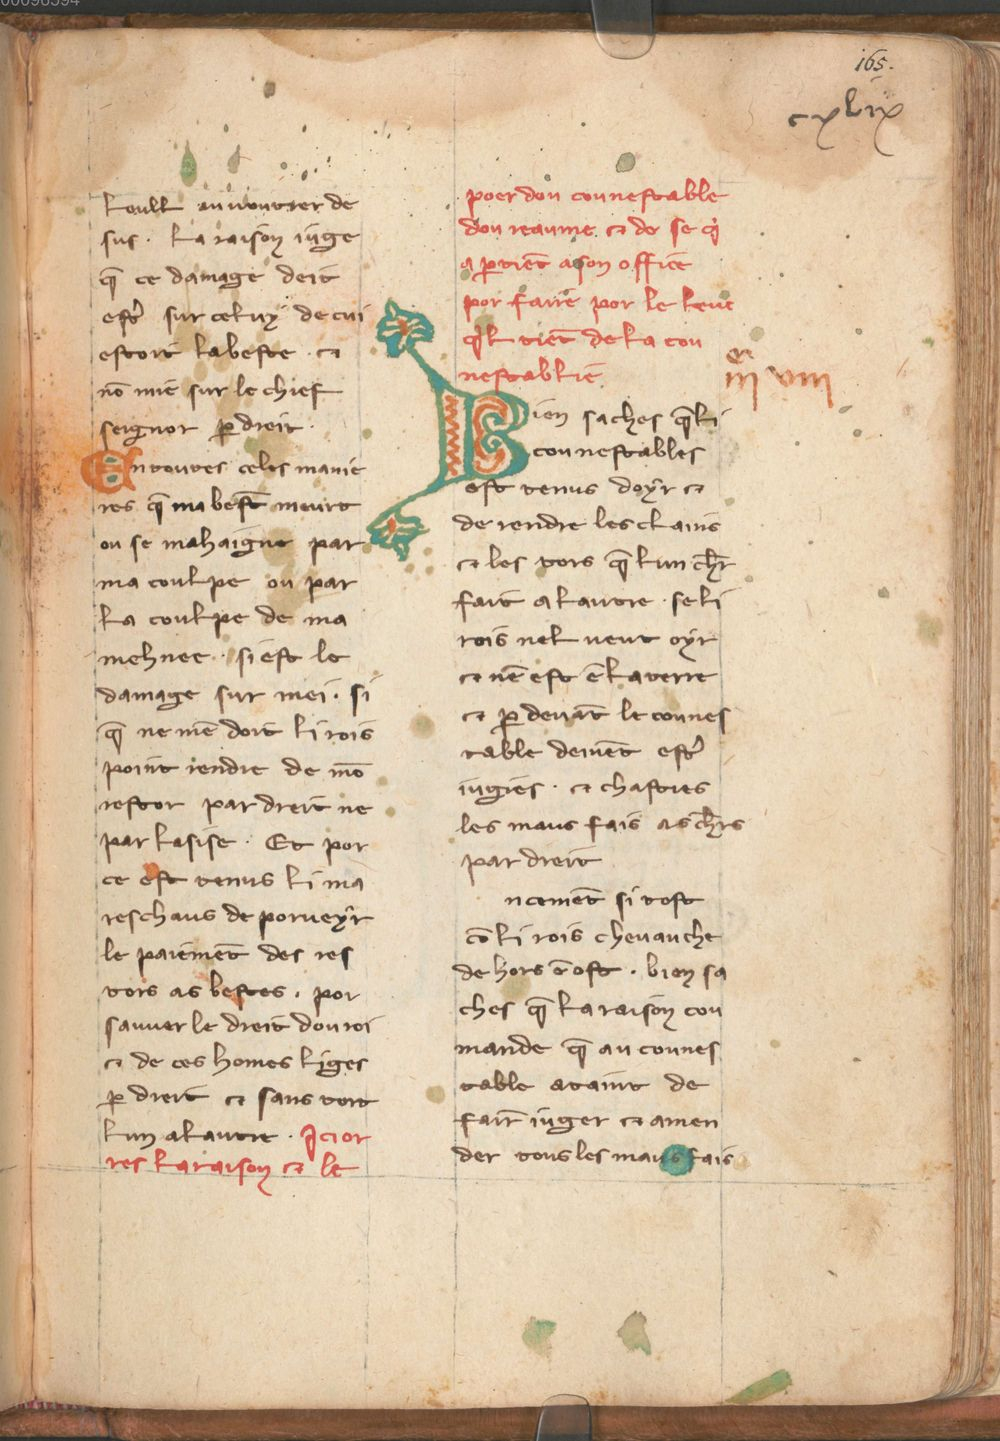 165.
cxlix
sus. la raison iuge
q̄ ce damage deit
estr̾ sur celuy de cui
estoit labeste . ⁊
nō mie sur le chief
seignor ꝑ dreit .
Entoutes celes manie
res q̄ ma best̄ meurt
ou se mahaigne par
ma coulpe ou par
la coulpe de ma
mehnee . si est le
damage sur mei . si
q̄ ne mē doit li rois
point rendre de mō
restor par dreit ne
par lasise . Et por
ce est tenus li ma
reschaus de porueyr
le paiemēt des res
tors as bestes . por
sauuer le dreit dou roi
⁊ de ces homes liges
ꝑ dreit ⁊ sans tort
lun a lautre . Ici or
res la raison ⁊ le
poer dou connestable
dou reaume ⁊ de se q̇
a ꝑtiēt a son office
por faire por le leuc
q̇l tiēt de la con
nestablie
Bien saches q̄ li
connestables
est tenus doyr ⁊
de rendre les clains
⁊ les tors q̄ lun ch̄r
fait a lautre . se li
rois nel ueut oyr
⁊ nē est ē la terre
⁊ ꝑ deuāt le connes
table deiuēt estr̾
iugies . ⁊ chasties
les maus fais as ch̄rs
par dreit
ncemēt si tost
cō li rois cheuauche
de hors ē ost . bien sa
ches q̄ la raison cou
mande q̄ au connes
table ataint de
fair̄ iuger ⁊ amen
der tous les maus fais